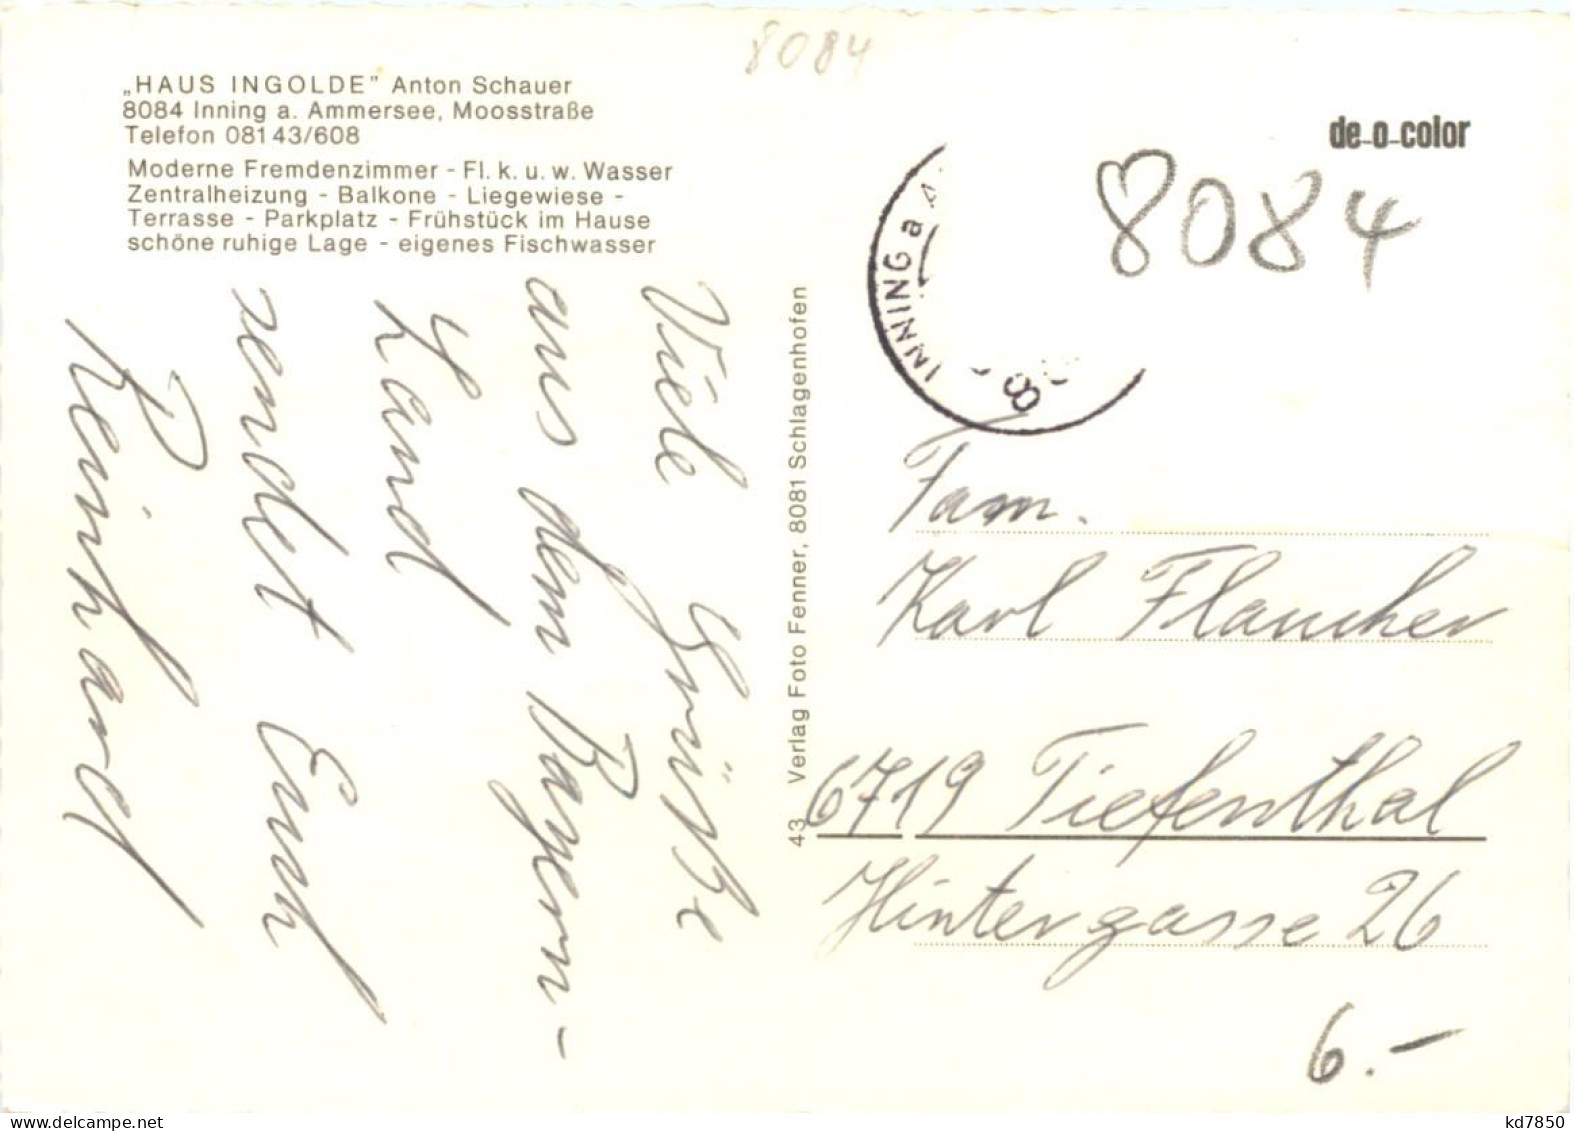 8084
„HAUS INGOLDE” Anton Schauer
8084 Inning a. Ammersee, Moosstraße
Telefon 08143/608
Moderne Fremdenzimmer - Fl. k. u. w. Wasser
Zentralheizung - Balkone - Liegewiese -
Terrasse - Parkplatz - Frühstück im Hause
schöne ruhige Lage - eigenes Fischwasser
Viele Grüße
aus dem Bayern-
Land
sendet Euch
Reinhard
43 Verlag Foto Fenner, 8081 Schlagenhofen
de-o-color
8084
INNING a
8
Fam.
Karl Flaucher
6719 Tiefenthal
Hintergasse 26
6.-
kd7850